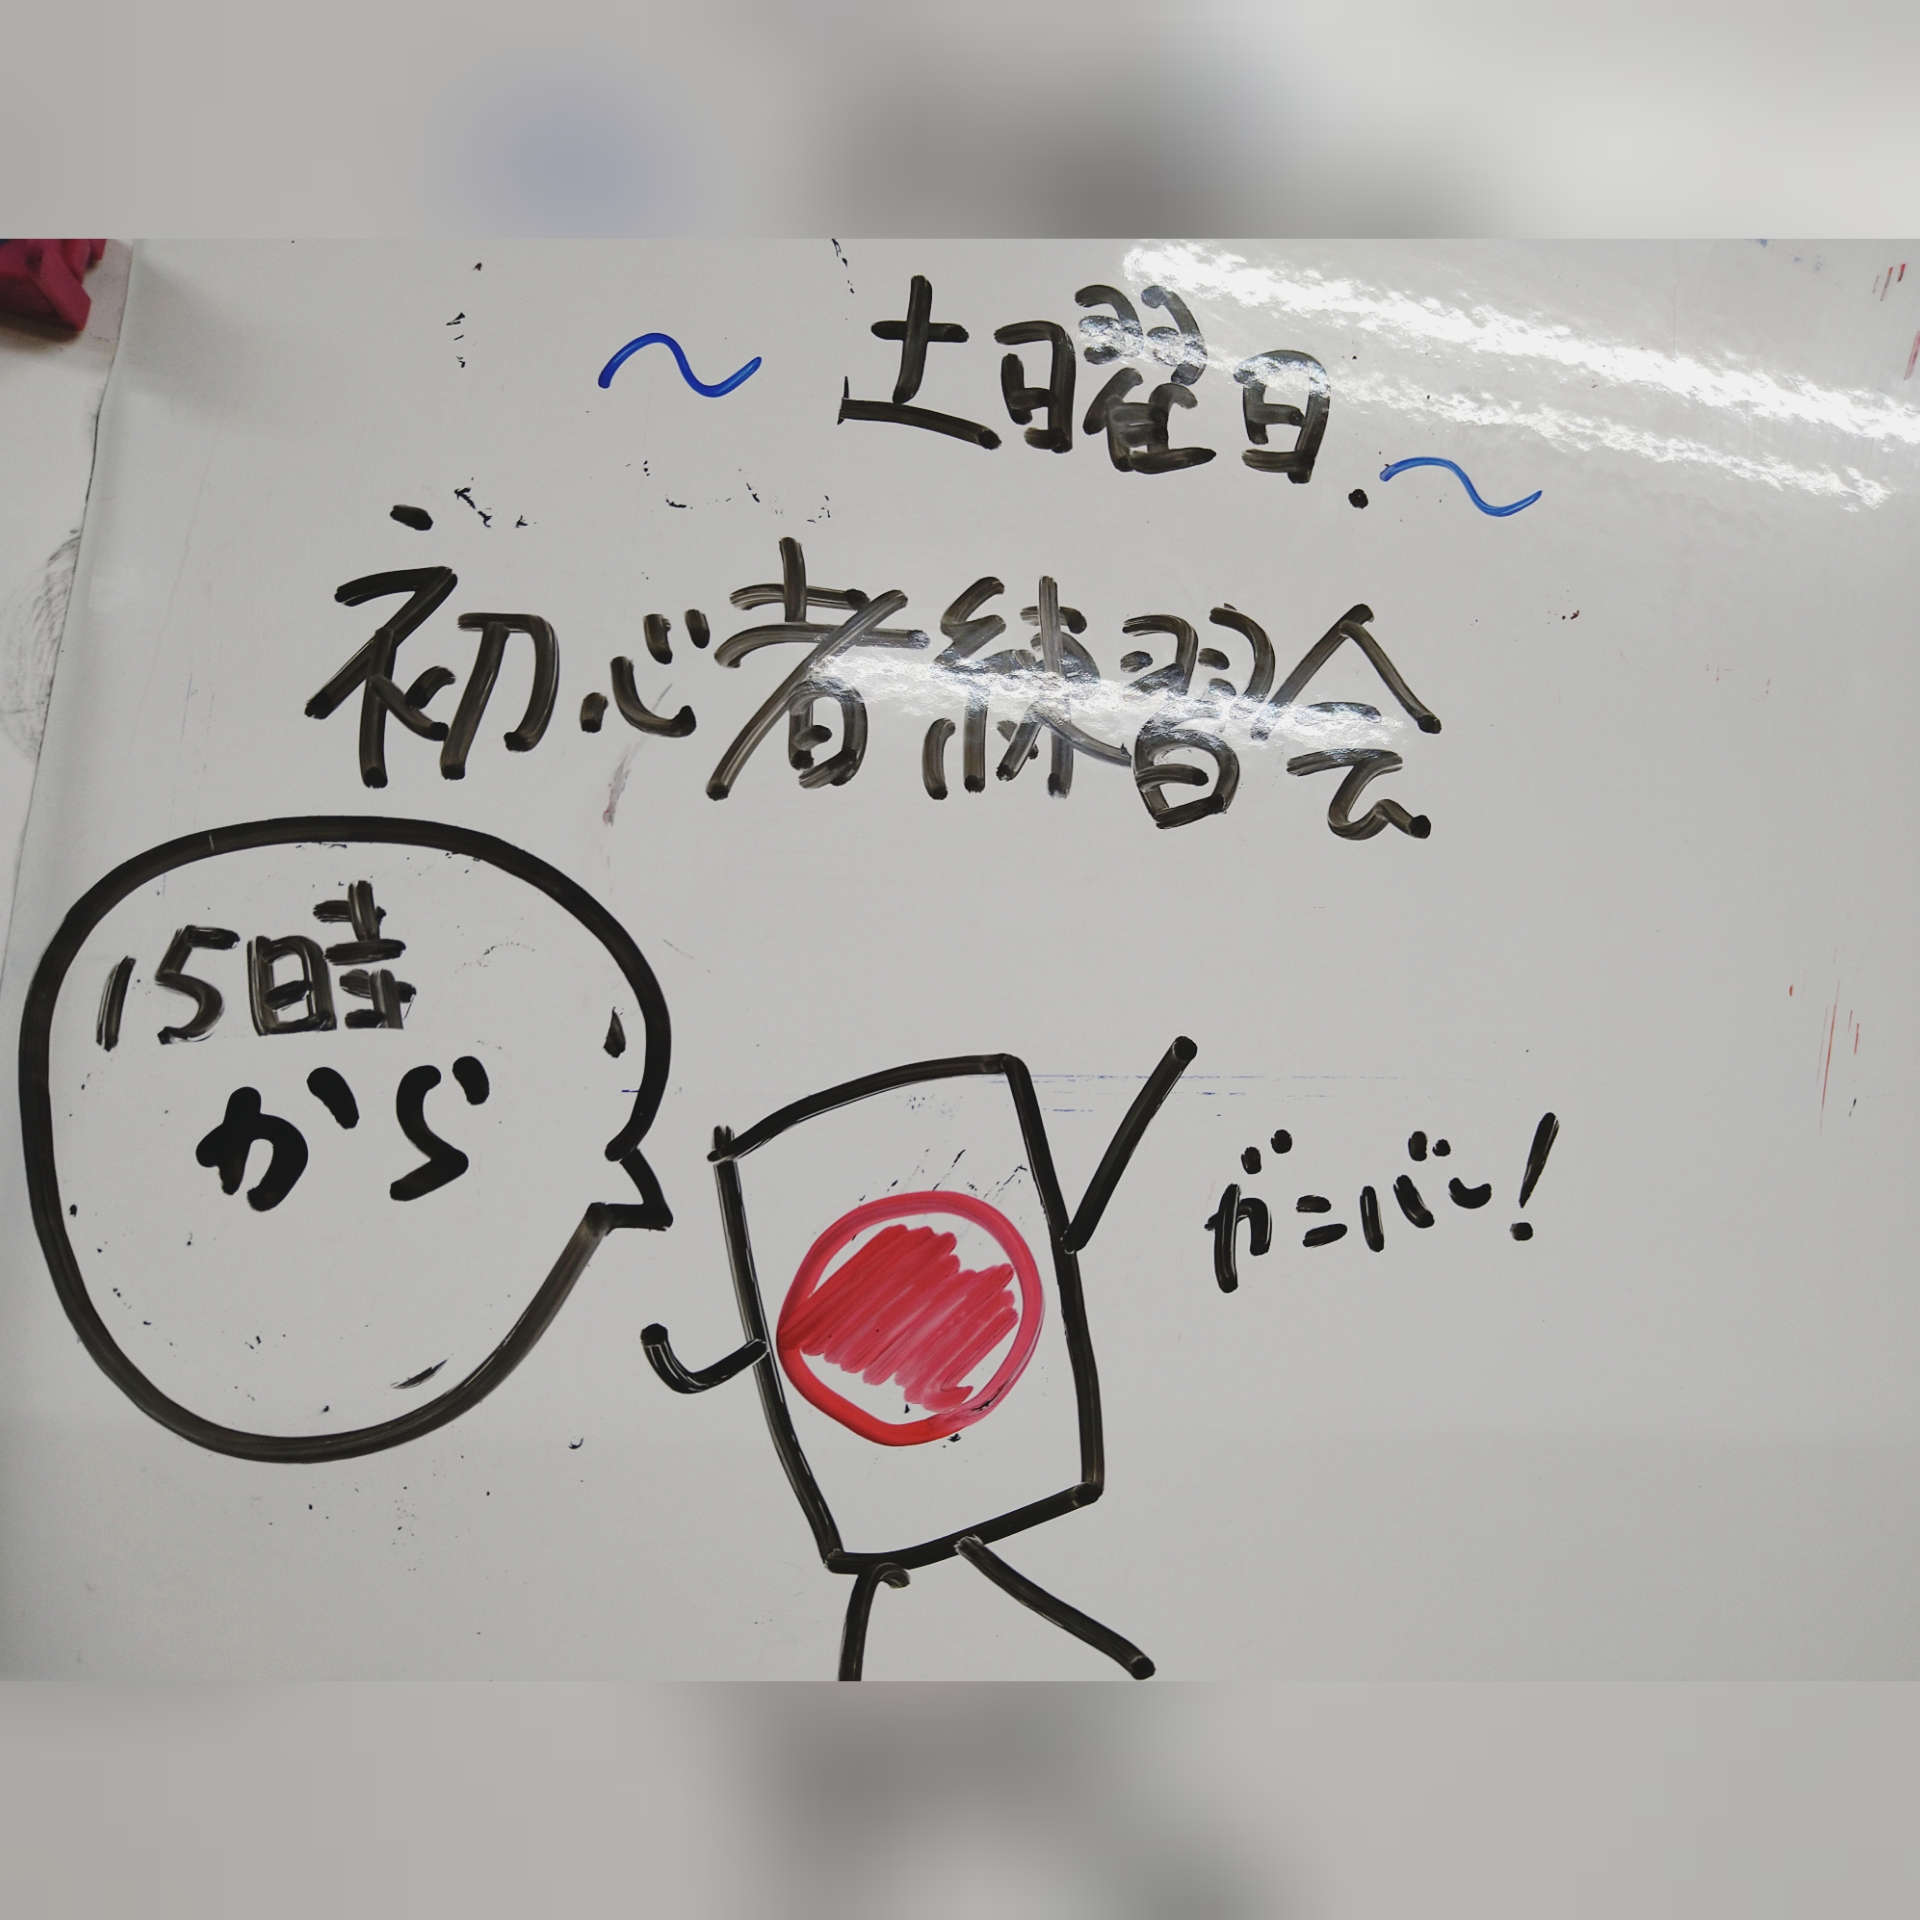 ～土曜日～
初心者練習会
15時
から
ガンバレ!